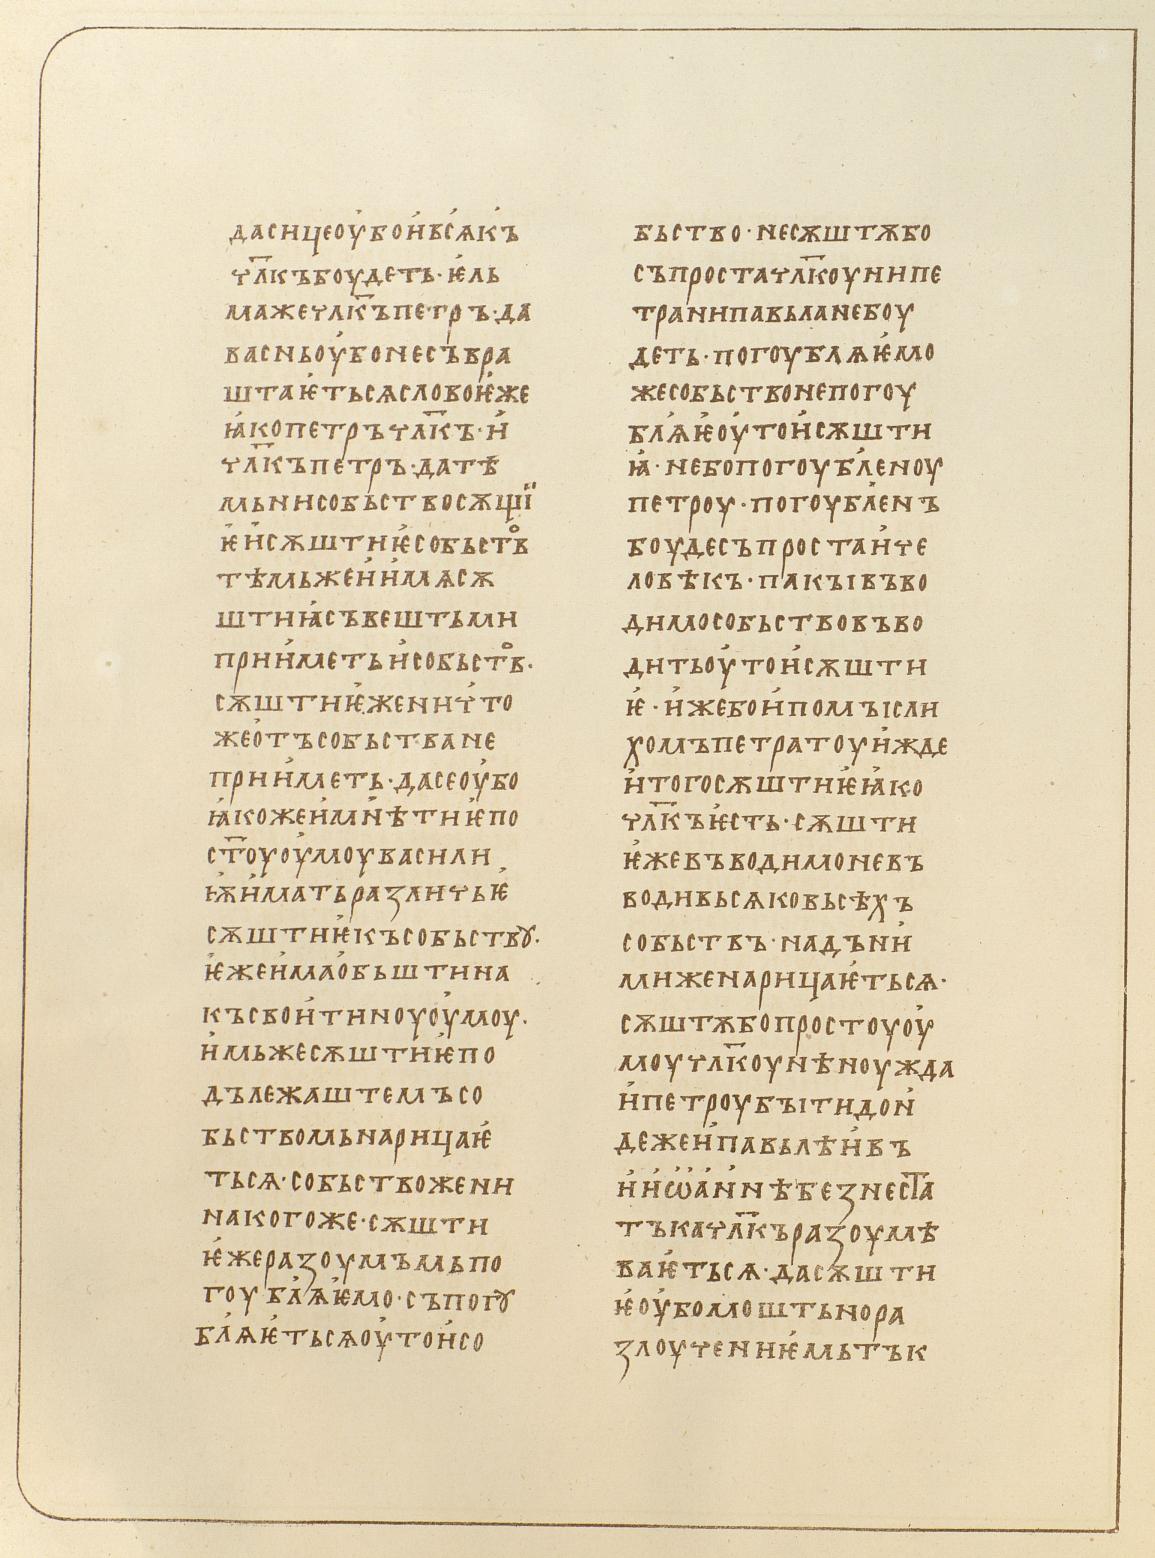 дасицеоу҆бои҆вс҆ѧк҆ъ
чл҃къбоудеть·ѥ҆ль
мажечлк҃ъпетръ·да
васньоу҆бонесъвра
штаѥ҆тьсѧсловоѥ҆же
ꙗ҆копетръчлк҃ъ·и҆
чл҃къпетръ·датѣ
мьнисобьствосѫщї
ѥ҆и҆сѫштиѥ҆собьстⷪ҇в
тѣмьжеи҆и҆мѧсѫ
штиꙗ҆съвештьми
прии҆меть и҆собьстⷪ҇в·
сѫштиѥ҆женич҆то
жео҆тъсобьстване
прии҆меть·дасеоу҆бо
ꙗ҆кожеи҆мн҆ѣтиѥ҆по
ст҃оуоу҆моувасили
ѭ҆и҆матьразличьѥ҆
сѫштиѥ҆късобьствꙋ·
ѥ҆жеи҆мао҆бьштина
късвои҆тиноуоу҆моу·
и҆мьжесѫштиѥ҆по
дълежаштемъсо
бьствомьнарицаѥ҆
тьсѧ·собьствожени
накогоже·сѫшти
ѥ҆жеразоумъмьпо
гоубл҆ѧѥ҆мо·съпогꙋ
бл҆ѧѥ҆тьсѧоу҆тои҆со
бьство·несѫштѫбо
съпростачл҃коунипе
траниπавьланебоу
деть·погоублꙗѥ҆мо
жесобьствонепогоу
бл҆ѧѥ҆оу҆тои҆сѫшти
ꙗ҆·небопогоубл҆еноу
петроу·погоубл҆енъ
боудесъпростаи҆че
ловѣкъ·пакꙑвъво
димособьствовъво
дитьоу҆тои҆сѫшти
ѥ҆·и҆жебои҆помꙑсли
хомъпетратоуи҆жде
и҆тогосѫштиѥ҆ꙗ҆ко
чл҃къѥ҆сть·сѫшти
ѥ҆жевъводимоневъ
водивьсѧковьсѣхъ
собьствъ·надъни҆
миженарицаѥ҆тьсѧ·
сѫштѫбопростоуоу҆
моучл҃коунѣноужда
и҆петроубꙑтидои҆
дежеи҆павьлѣи҆въ
и҆и҆ѡ҆а҆н҆нѣбезнест҃а
тъкачл҃къразоумѣ
ваѥ҆тьсѧ·дасѫшти
ѥ҆оу҆бомоштьнора
злоучениѥ҆мьтък